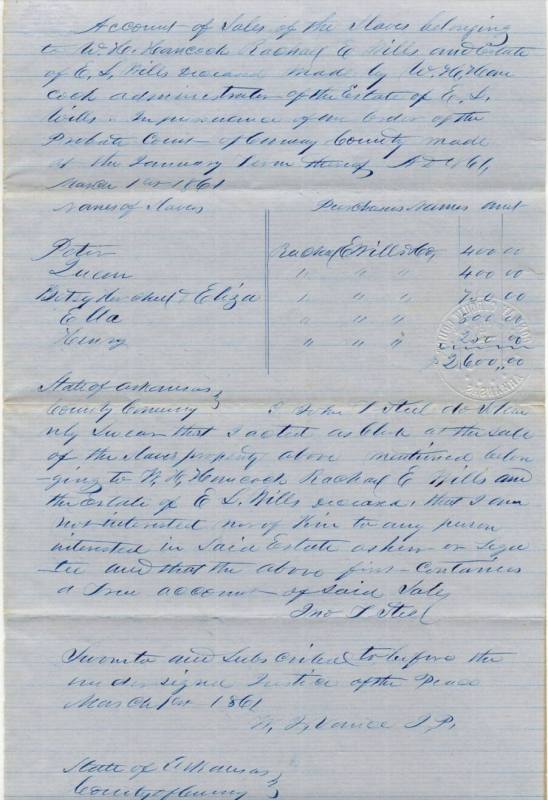 Account of Sales of the Slaves belonging
to W. H. Hancock Rachael E Wills and Estate
of E. L. Wills deceased made by W. H. Han
cock administrator of the Estate of E. L.
Wills. In pursuance of an Order of the
Probate Court of Conway County made
at the January Term thereof AD 1861,
March 1st 1861
Names of Slaves Purchasers Names amt
Peter Rachael E Wills & Co, 400 00
" " " 400 00
Betsy her child & Eliza " " " 00
Ella " " " 00
Henry " " " 00
$2,600,,00
State of Arkansas
County Conway I John T Steel do Solem
nly Swear that I acted as Clerk at the Sale
of the Slave property above mentioned belon
-ging to W. H. Hancock Rachael E Wills and
the Estate of E L. Wills deceased, that I am
not interested nor of Kin to any person
interested in Said Estate as heir or Lega
tee and that the above contains
a True account of Said Sale
Jno T Steel
Sworn to and Subscribed to before the
undersigned Justice of the Peace
March 1st 1861
J. P.
State of Arkansas
County of Conway